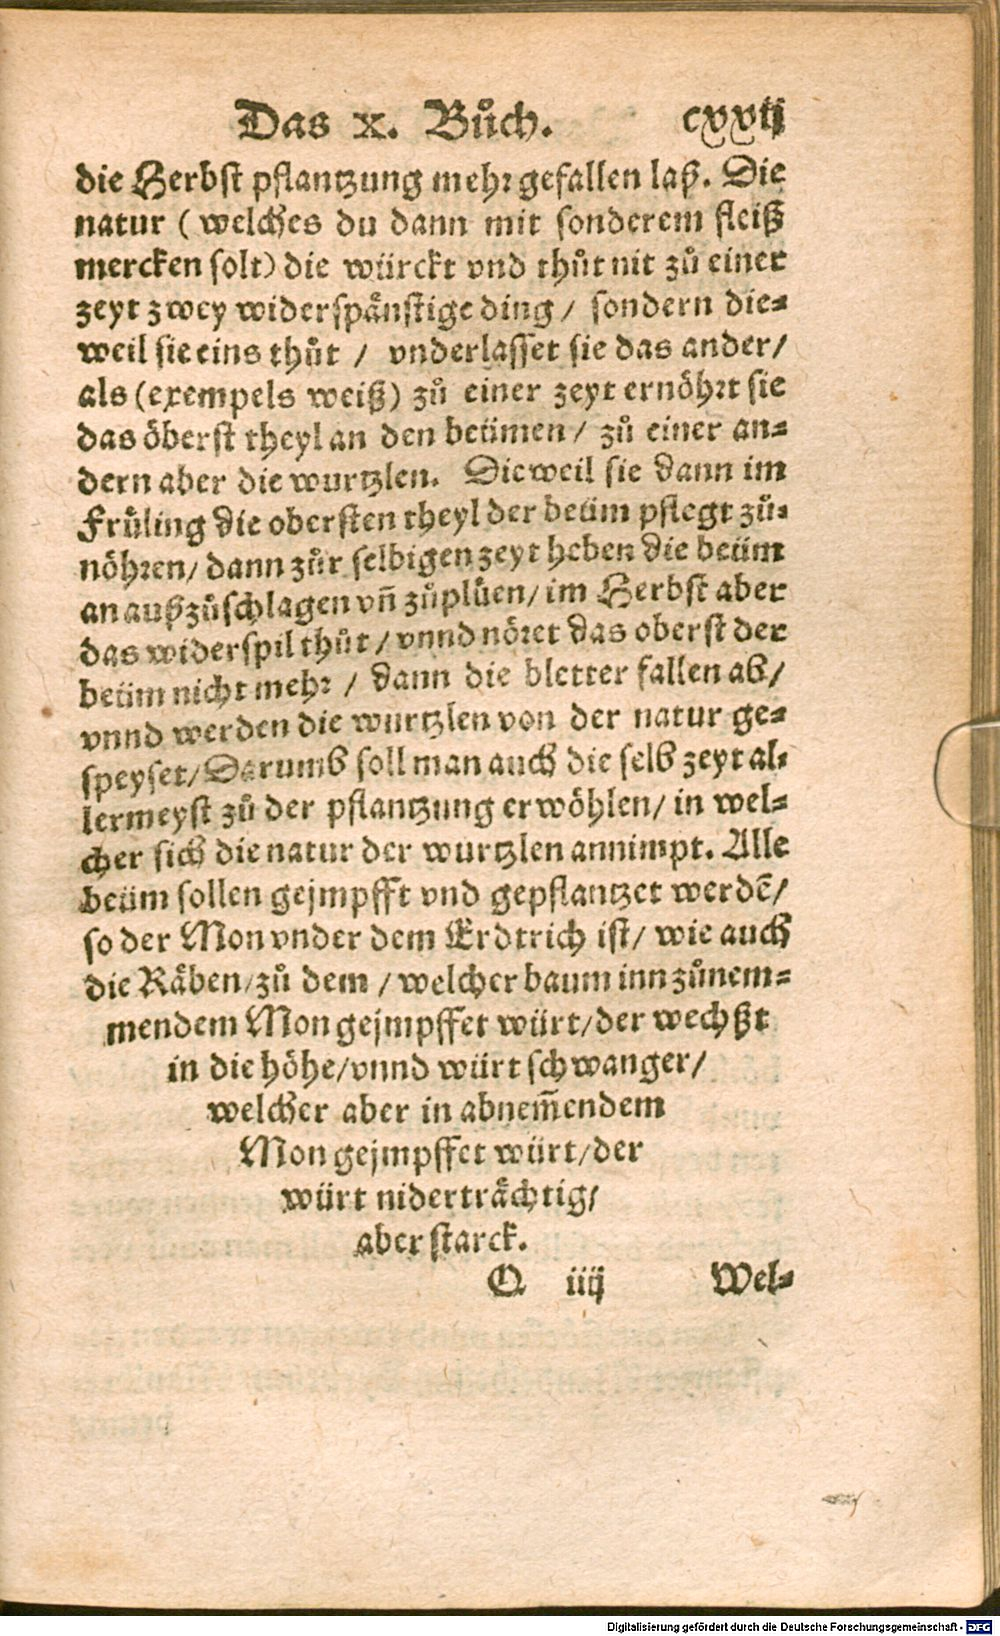 Das x. Bůch. cxxvij
die Herbst pflantzung mehr gefallen laß. Die
natur (welches du dann mit sonderem fleiß
mercken solt) die würckt vnd thůt nit zů einer
zeyt zwey widerspänstige ding/ sondern die=
weil sie eins thůt / vnderlasset sie das ander/
als (exempels weiß) zů einer zeyt ernöhrt sie
das öberst theyl an den beümen/ zů einer an=
dern aber die wurtzlen. Dieweil sie dann im
Früling die obersten theyl der beüm pflegt zů=
nöhren/ dann zůr selbigen zeyt heben die beüm
an außzůschlagen vñ zůplüen/ im Herbst aber
das widerspil thůt / vnnd nöret das oberst der
beüm nicht mehr / dann die bletter fallen ab/
vnnd werden die wurtzlen von der natur ge=
speyset/ Darumb soll man auch die selb zeyt al=
lermeyst zů der pflantzung erwöhlen/ in wel=
cher sich die natur der wurtzlen annimpt. Alle
beüm sollen gejmpfft vnd gepflantzet werdē/
so der Mon vnder dem Erdtrich ist/ wie auch
die Räben/ zů dem / welcher baum inn zůnem=
mendem Mon gejmpffet würt/ der wechßt
in die höhe/ vnnd würt schwanger/
welcher aber in abnem̄endem
Mon gejmpffet würt/ der
würt niderträchtig/
aber starck.
Q iiij Wel=
Digitalisierung gefördert durch die Deutsche Forschungsgemeinschaft - DFG